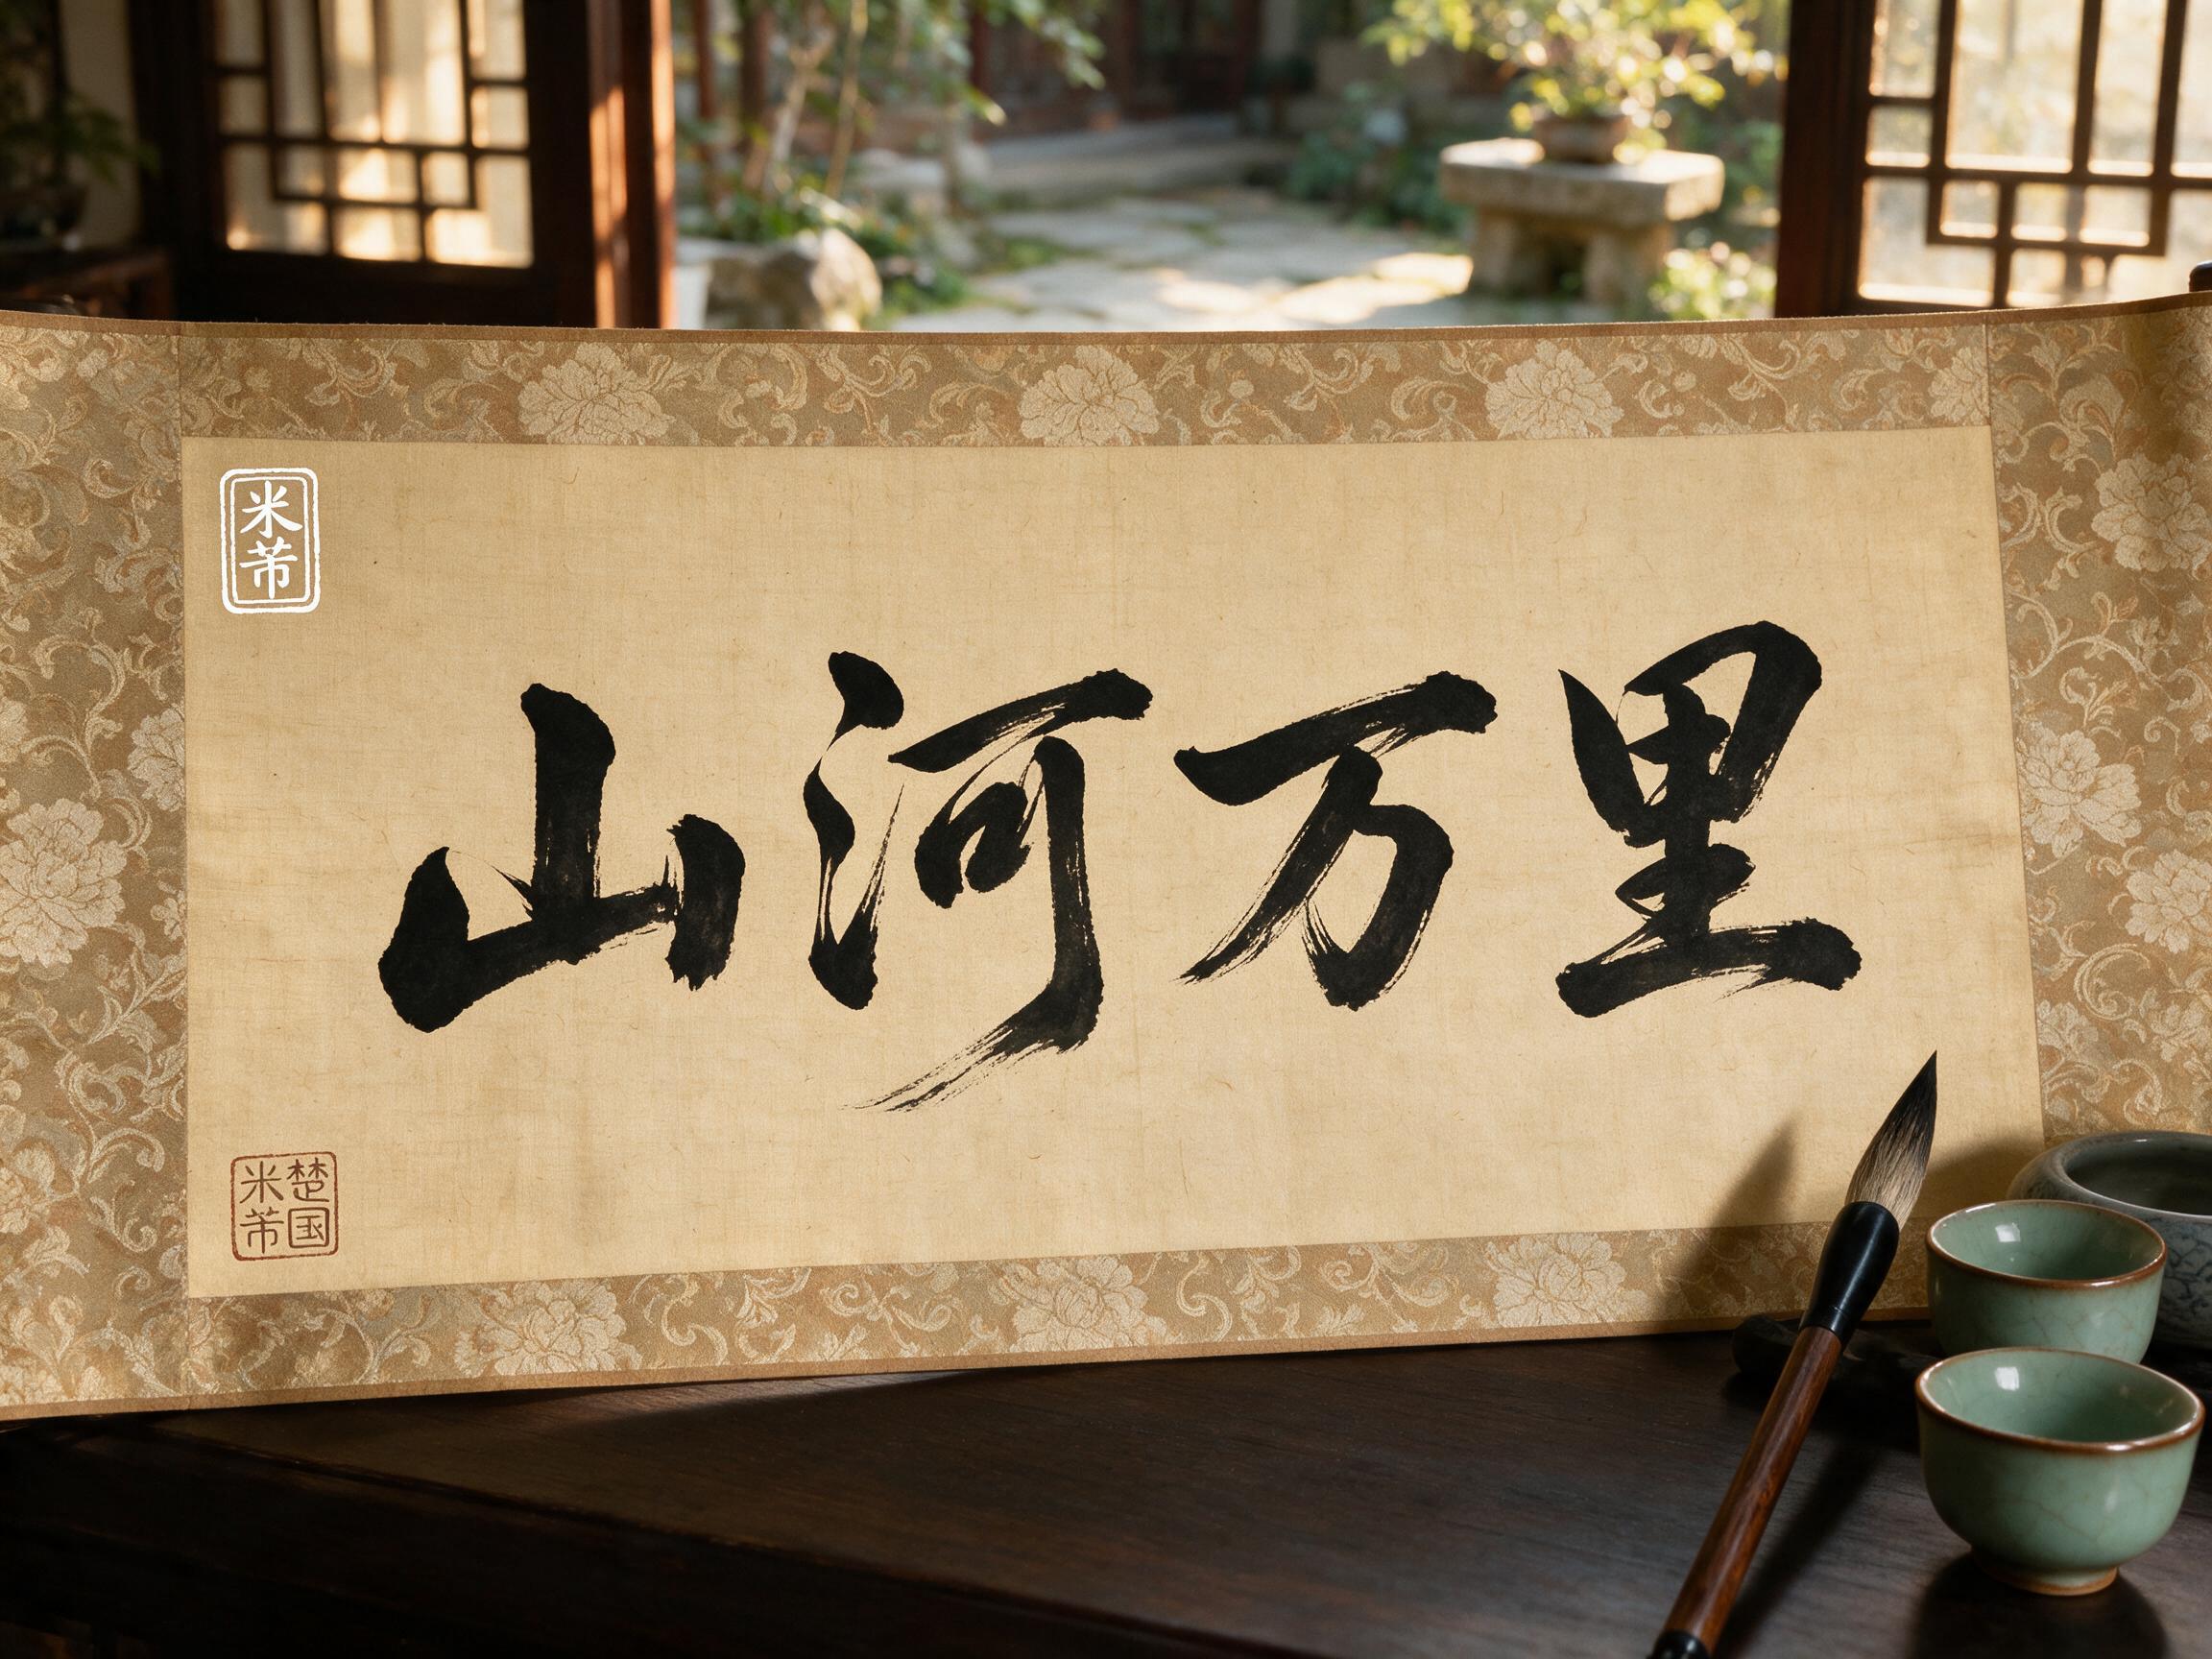 米芾
山河万里
楚国
米芾